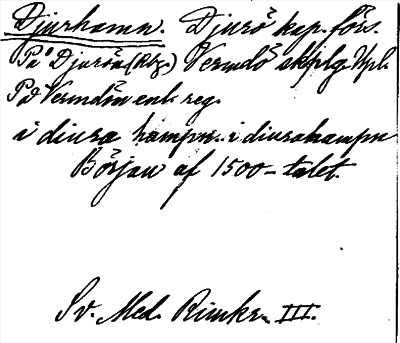 Djurhamn. Djurö kap. förs.
På Djurön (Rtz.) Vermdö skplg. Upl.
På Vermdön enl. reg.
i diura hampn.. i diurahampn
Början af 1500-talet.
Sv. Med. Rimkr. III.